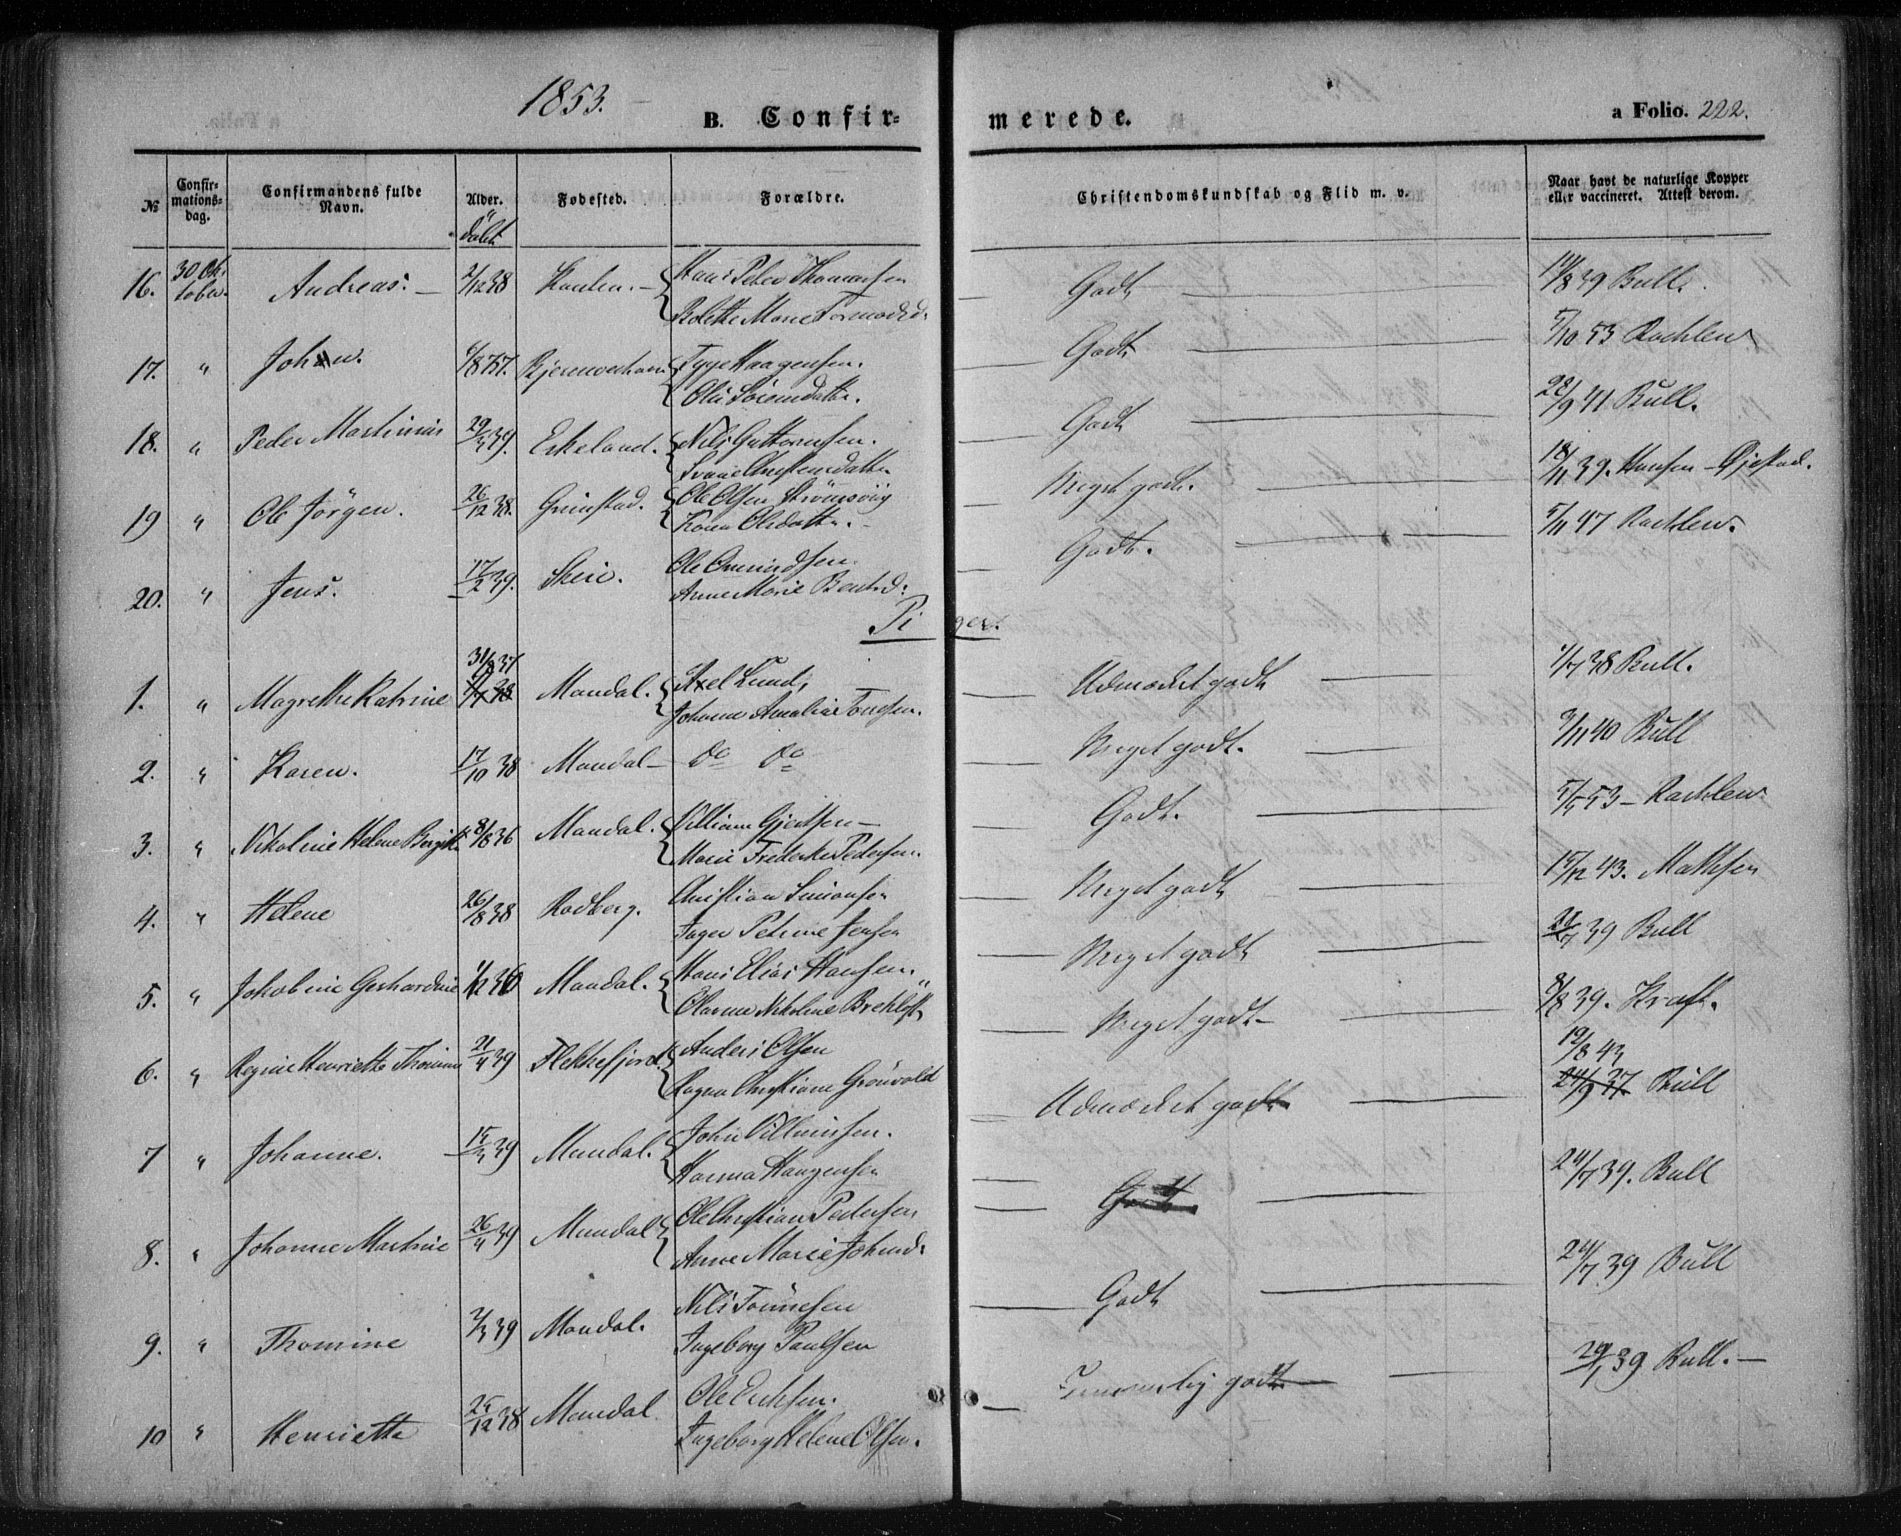 1853.
B. Confirmerede.
a Folio. 222.
№
Confirmationsdag.
Confirmandens fulde Navn.
Alder.
Fødested.
Forældre.
Christendomskundskab og Flid m. v.
Naar havt de naturlige Kopper eller vaccineret. Attest derom.
døbt
16. 30 Oktober. Andreas. 2/12 38 Hans Peder Godt 14/8 39 Bull.
17. " Johan. 6/8 37. Tyge Haagensen. Godt 5/10 53 Rachlew
18. " Peder Martinius 29/3 39. Eskeland. Nils Guttormsen. Godt 22/9 41 Bull.
19 " Ole Jörgen. 26/12 38. Grimstad. Ole Olsen Strömsvig Meget godt. 18/11 39. Hansen - Øjestad.
Karen Olsdatter.
20. " Jens. 17/2 39. Skeie. Ole Omundsen. Godt. 5/11 47 Rachlew.
Anne Marie Bentsd:
Piger.
1. " Magrethe Katrine 31/8 37 Mandal. Axel Lund, Udmærket godt 1/7 38 Bull.
Johanne Amalia Tönsen.
2. " Karen. 17/10 38 Mandal do do Meget godt. 9/11 40 Bull
3. " Nikoline Helene Bergitte 8/8 36 Mandal. Villiam Gjertsen Godt. 5/5 53 - Rachlew.
Marie Frederike Pedersen.
4. " Helene 26/8 38 Rodberg. Christian Simonsen Meget godt 15/12 43. Mathsen
Inger Petrine Jensen
5. " Jakobine Gerhardine Mandal. Hans Elias Hansen. Meget godt 39 Bull
6. " Regine Henriette 21/4 39 Flekkefjord. Anders Olsen Meget godt 8/8 39. Kraft.
Christiane Grönvold
7 " Johanne. 15/3 39 Mandal. John Villumsen. Udmærket godt 19/8 43
24/9 37. Bull
Hanna Haagensen
8. " Johanne Martine 26/4 39 Mandal Ole Christian Pedersen Godt 24/7 39. Bull
Anne Marie Johnsd:
9. " Thomine 2/3 39 Mandal. Nils Tönnesen Godt 24/7 39 Bull
Ingeborg Paulsen
10 " Henriette 25/12 38 Mandal Ole Eriksen. Temmelig godt 39 Bull.
Ingeborg Helene Olsen.